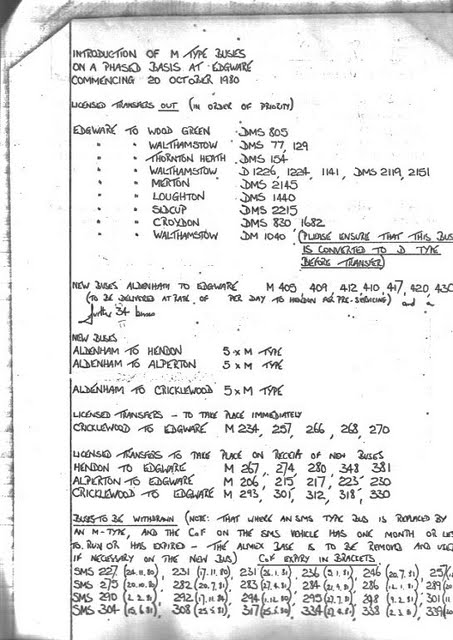 INTRODUCTION OF M TYPE BUSES
ON A PHASED BASIS AT EDGWARE
COMMENCING 20 OCTOBER 1980
LICENSED TRANSFERS OUT (IN ORDER OF PRIORITY)
EDGWARE TO WOOD GREEN DMS 805
" " WALTHAMSTOW DMS 77, 129
" " THORNTON HEATH DMS 154
" " WALTHAMSTOW D 1226, 1224, 1141, DMS 2119, 2151
" " MERTON DMS 2145
" " LOUGHTON DMS 1440
" " SIDCUP DMS 2215
" " CROYDON DMS 830 1682
" " WALTHAMSTOW DM 1040 (PLEASE ENSURE THAT THIS BUS
IS CONVERTED TO D TYPE
BEFORE TRANSFER)
NEW BUSES ALDENHAM TO EDGWARE M 405, 409, 412, 410, 417, 420, 430
(TO BE DELIVERED AT RATE OF PER DAY TO HENDON FOR PRE-SERVICING) and a
further 34 buses
NEW BUSES
ALDENHAM TO HENDON 5 x M TYPE
ALDENHAM TO ALPERTON 5 x M TYPE
ALDENHAM TO CRICKLEWOOD 5 x M TYPE
LICENSED TRANSFERS - TO TAKE PLACE IMMEDIATELY
CRICKLEWOOD TO EDGWARE M 234, 257, 266, 268, 270
LICENSED TRANSFERS TO TAKE PLACE ON RECEIPT OF NEW BUSES
HENDON TO EDGWARE M 267, 274, 280, 348, 381
ALPERTON TO EDGWARE M 206, 215, 217, 223, 230
CRICKLEWOOD TO EDGWARE M 293, 301, 312, 318, 330
BUSES TO BE WITHDRAWN (NOTE: THAT WHERE AN SMS TYPE BUS IS REPLACED BY
AN M-TYPE, AND THE CoF ON THE SMS VEHICLE HAS ONE MONTH OR LES
TO RUN OR HAS EXPIRED - THE ALMEX BASE IS TO BE REMOVED AND
IF NECESSARY ON THE NEW BUS) CoF EXPIRY IN BRACKETS
SMS 227 231 (17.11.80) 231 (26.1.81) 236 246 (20.7.81) 257
SMS 275 (20.10.80) 282 283 284 286 289
SMS 290 (2.2.81) 292 (17.11.80) 294 295 298 301
SMS 304 308 317 334 338 339